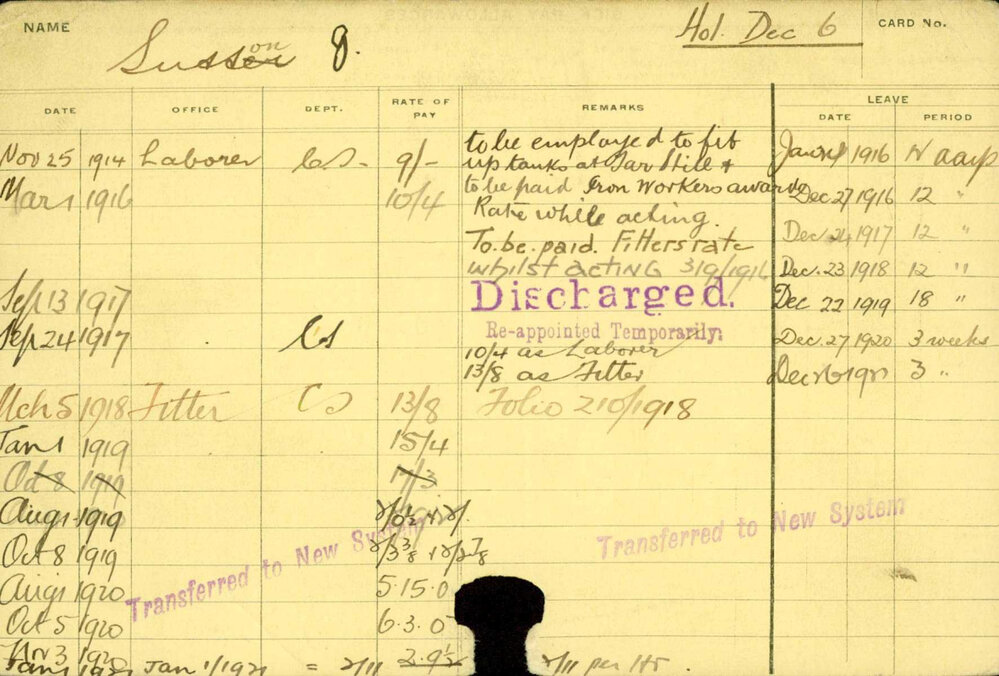 NAME
Hol. Dec 6
CARD No.
on
J.
DATE OFFICE DEPT. RATE OF PAY REMARKS
LEAVE
DATE PERIOD
Nov 25 1914 Laborer CS - 9/-
to be employed to fit
up tanks at Tar Still +
to be paid Iron Workers award
Rate while acting.
Mar 1 1916 10/4
To be paid Fitters rate
whilst acting 319/1916
Sep 13 1917 Discharged.
Sep 24 1917 CS Re-appointed Temporarily.
10/4 as Laborer
13/8 as Fitter
Mch 5 1918 Fitter CS 13/8 Folio 210/1918
Jan 1 1919 15/4
Oct 8 1919
Aug 1 1919
Oct 8 1919
Aug 1 1920 5.15.0
Oct 5 1920 6.3.0
Nov 3 1920 2.9½
Jan 1/1921 = 2/11 2/11 per Hr.
1916
Dec 27 1916 12 "
Dec 24 1917 12 "
Dec. 23 1918 12 "
Dec 22 1919 18 "
Dec. 27 1920 3 weeks
3 "
Transferred to New System
Transferred to New System